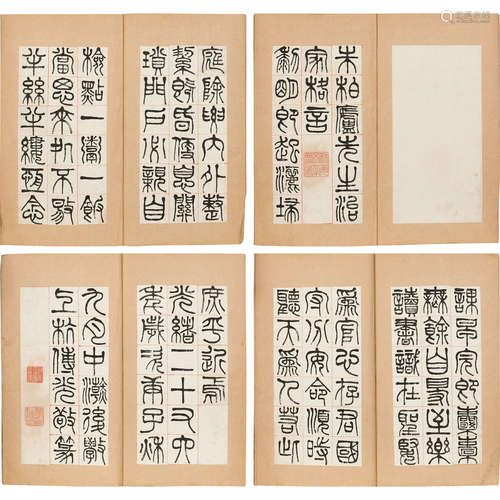 朱柏廬先生治
家格言
黎明即起灑埽
庭除要内外整
絜既昏便息關
鎖門戶必親自
檢點一粥一飯
當思來処不易
半絲半縷恆念
課早完即囊橐
無餘自得至樂
讀書識在聖賢
爲官心存君國
守分安命順時
聽天爲人若此
庶乎近焉
光緒二十又六
年歲次庚子秋
九月中澣後學
上杭傅光敬篆